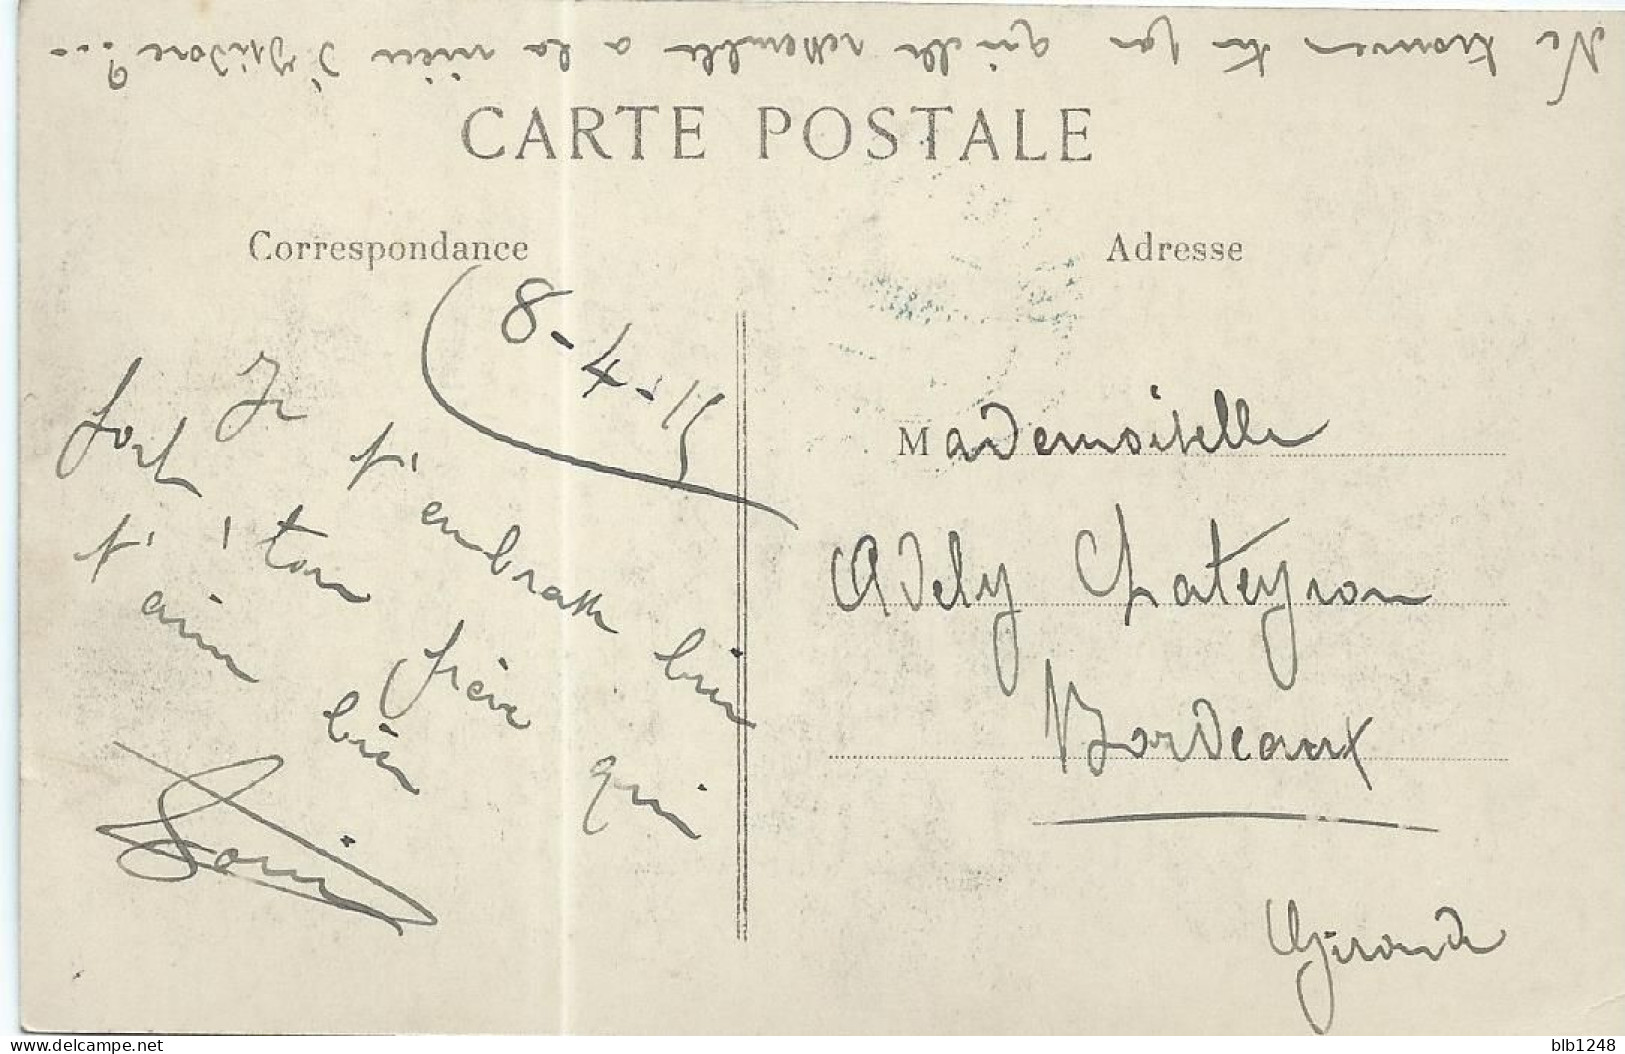 Ne trouves tu pas qu'elle ressemble a la nièce d'Isidore ?...
CARTE POSTALE
Correspondance
Adresse
8-4-15
Je t'embrasse bien
fort, ton frère qui
t'aime bien
Louis
Mademoiselle
Adely Chateyron
Bordeaux
Gironde
blb1248
delcampe.net